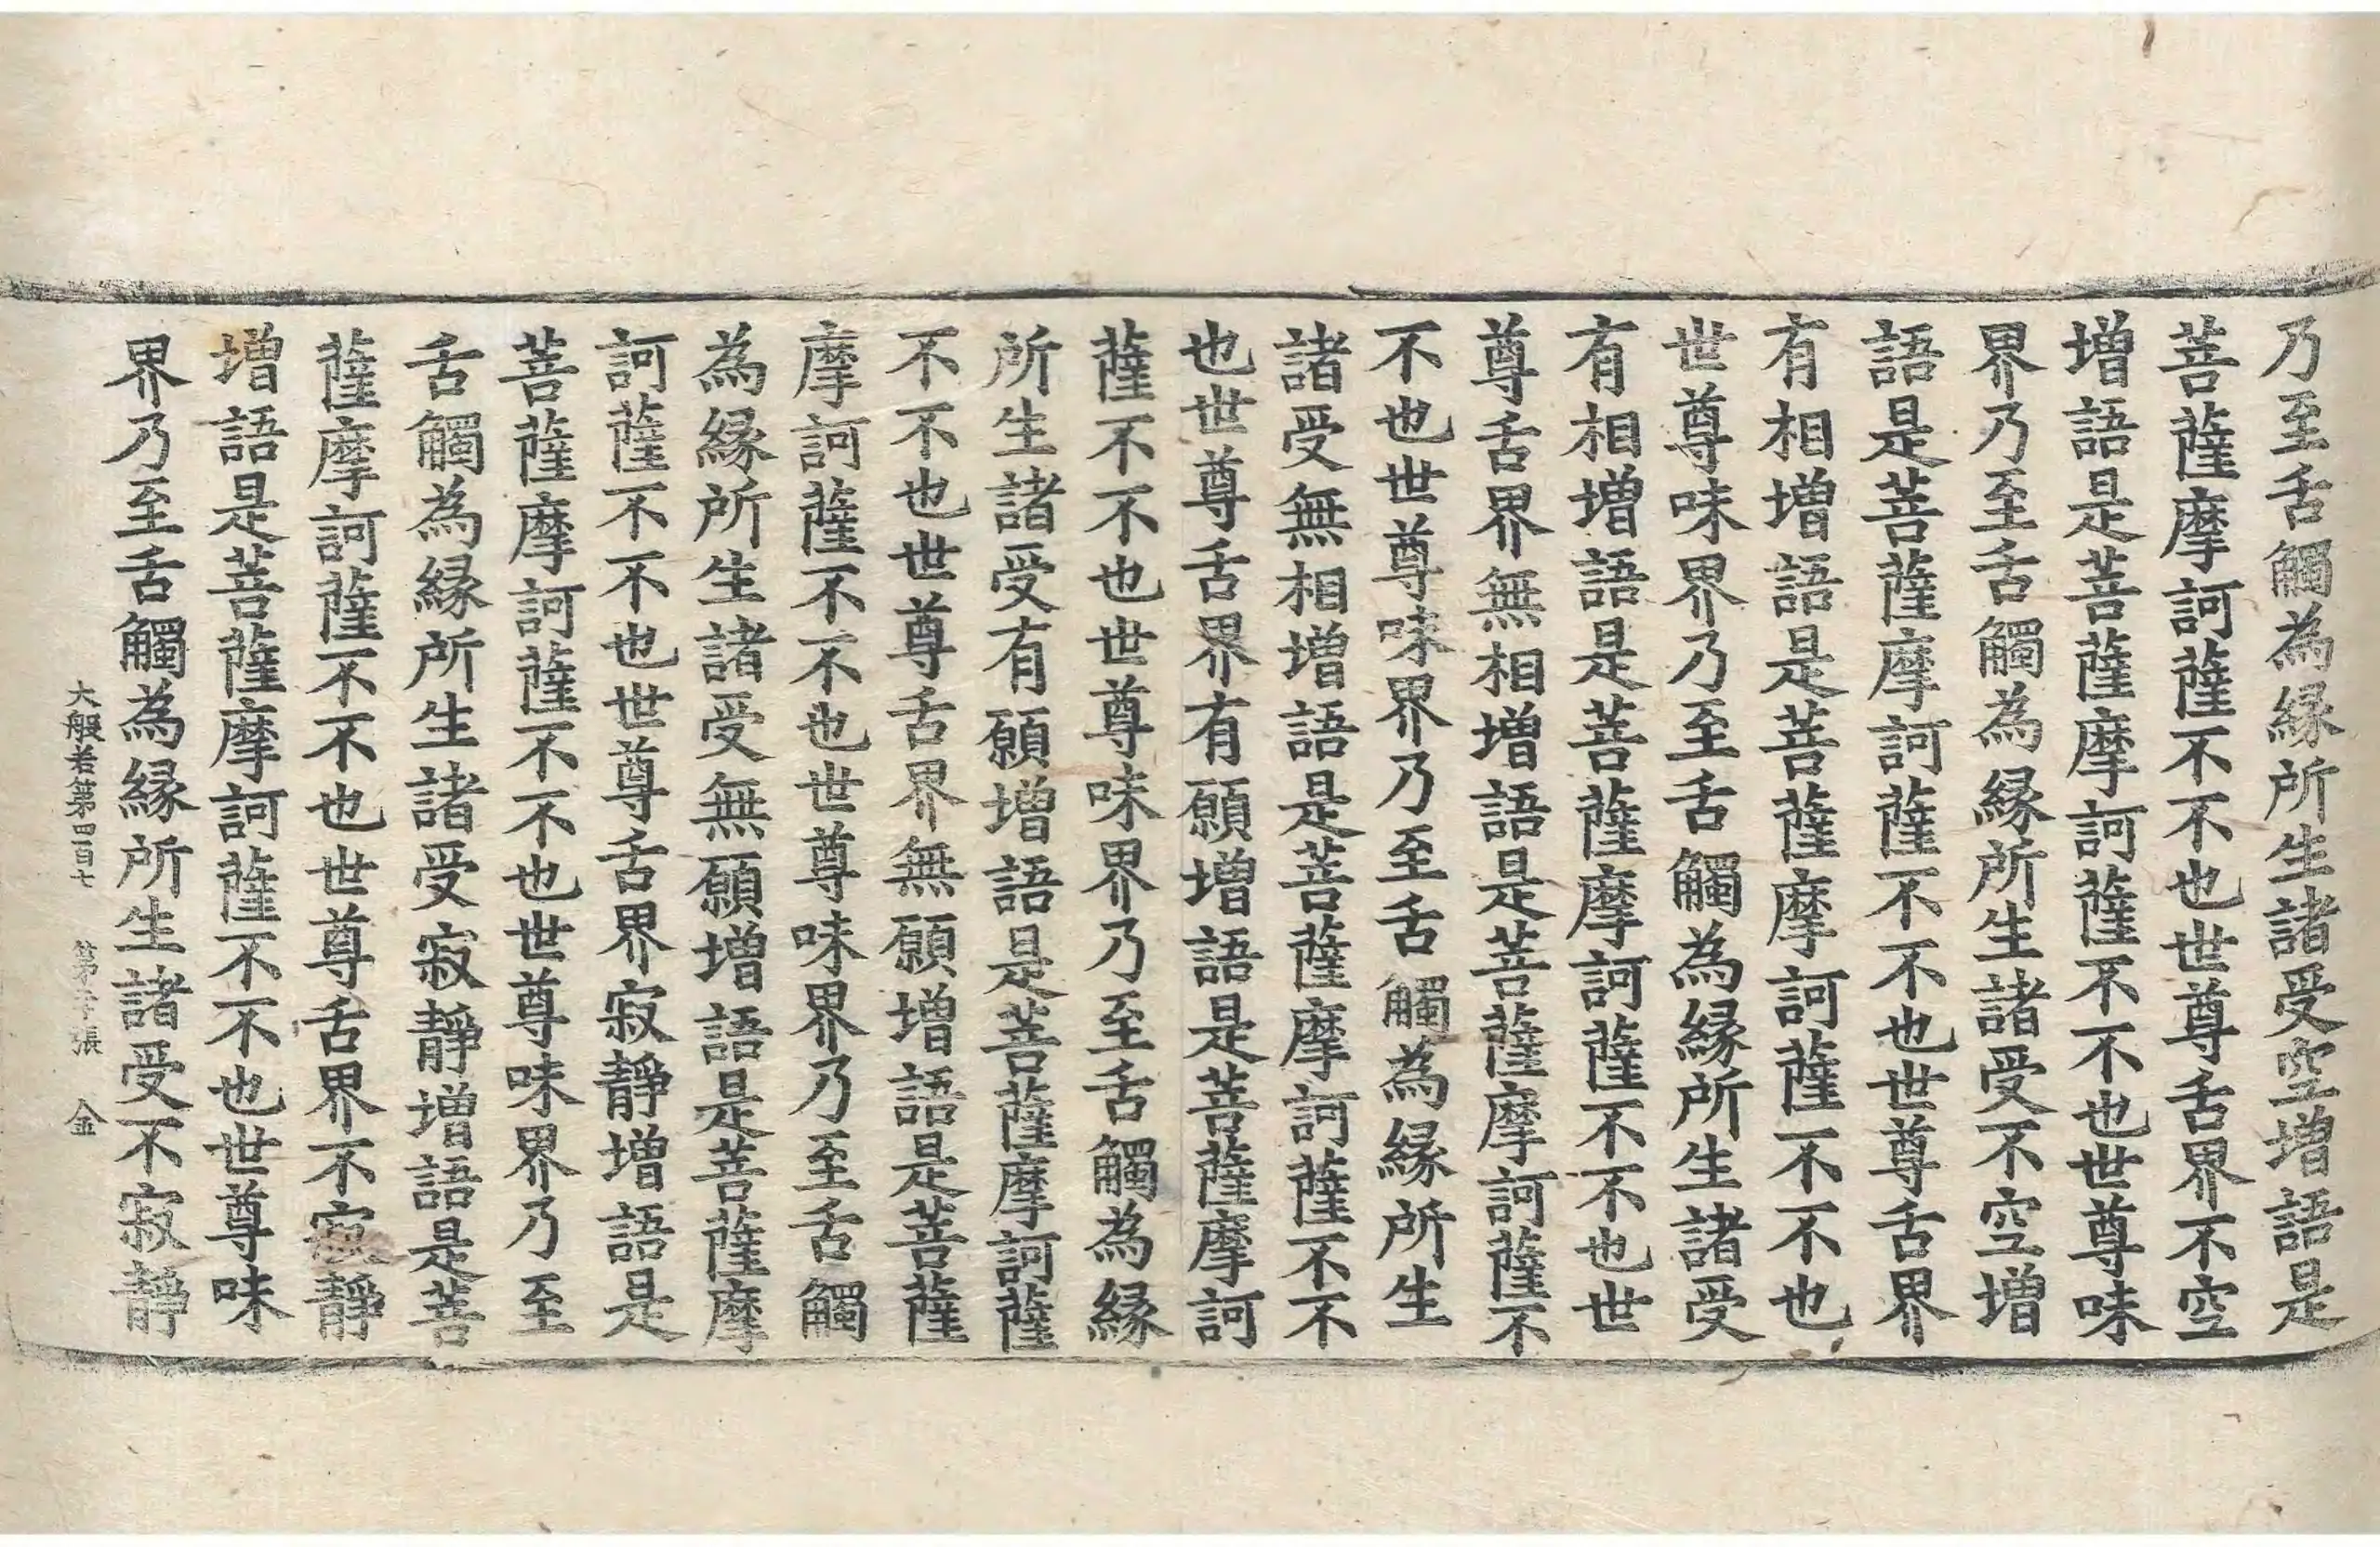 乃至舌觸為縁所生諸受空增語是
菩薩摩訶薩不不也世尊舌界不空
增語是菩薩摩訶薩不不也世尊味
界乃至舌觸為縁所生諸受不空增
語是菩薩摩訶薩不不也世尊舌界
有相增語是菩薩摩訶薩不不也
世尊味界乃至舌觸為縁所生諸受
有相增語是菩薩摩訶薩不不也世
尊舌界無相增語是菩薩摩訶薩不
不也世尊味界乃至舌觸為縁所生
諸受無相增語是菩薩摩訶薩不不
也世尊舌界有願增語是菩薩摩訶
薩不不也世尊味界乃至舌觸為縁
所生諸受有願增語是菩薩摩訶薩
不不也世尊舌界無願增語是菩薩
摩訶薩不不也世尊味界乃至舌觸
為縁所生諸受無願增語是菩薩摩
訶薩不不也世尊舌界寂靜增語是
菩薩摩訶薩不不也世尊味界乃至
舌觸為縁所生諸受寂靜增語是菩
薩摩訶薩不不也世尊舌界不寂靜
增語是菩薩摩訶薩不不也世尊味
界乃至舌觸為縁所生諸受不寂靜
大般若第四百七 第 張 金